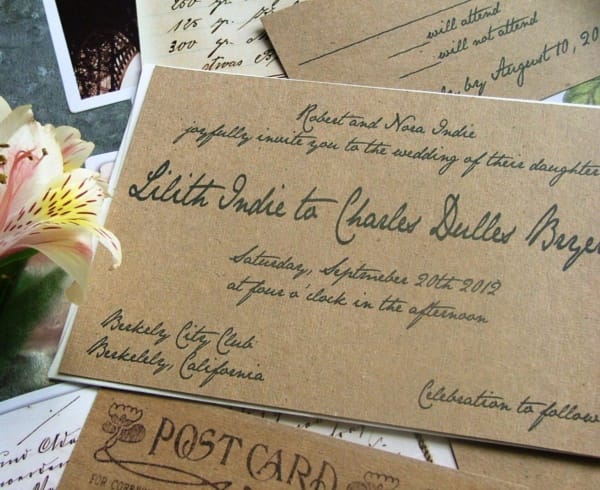 250 gr.
300 gr. o
etwas
will attend
will not attend
by August 10, 20
Robert and Nora Indie
joyfully invite you to the wedding of their daughter
Lilith Indie to Charles Dulles Bryer
Saturday, Septmeber 20th 2012
at four o'clock in the afternoon
Berkely City Club
Berkelely, California
Celebration to follow
POST CARD
FOR CORRES